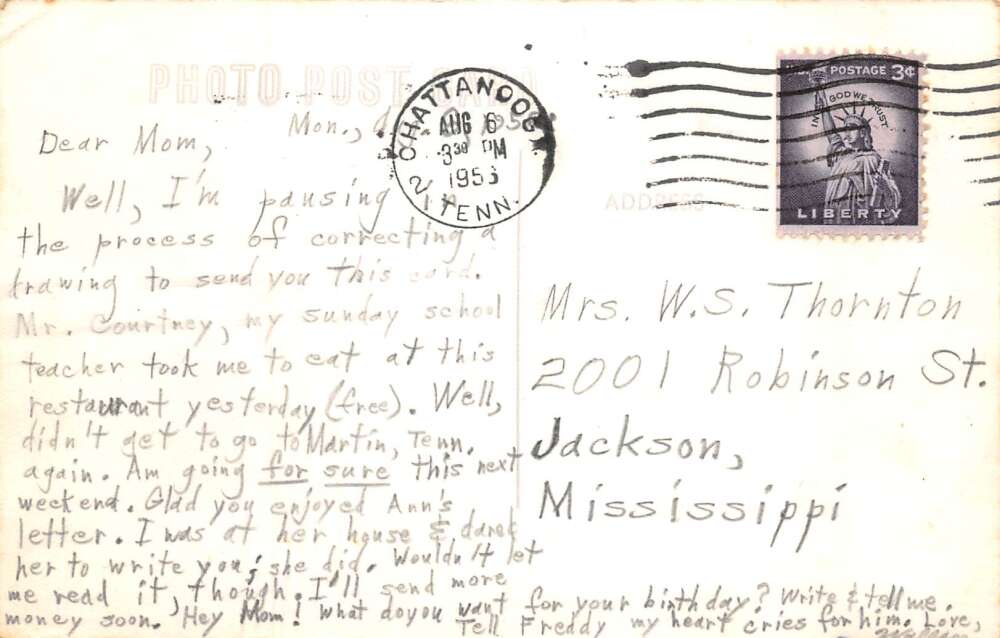 PHOTO POST CARD
ADDRESS
CHATTANOOG
AUG 6
3 30 PM
1956
2
TENN.
U.S. POSTAGE 3¢
IN GOD WE TRUST
LIBERTY
Mon.,
Dear Mom,
Well, I'm pausing in
the process of correcting a
drawing to send you this card.
Mr. Courtney, my sunday school
teacher took me to eat at this
restaurant yesterday (free). Well,
didn't get to go to Martin, Tenn.
again. Am going for sure this next
weekend. Glad you enjoyed Ann's
letter. I was at her house & dared
her to write you; she did. Wouldn't let
me read it, though. I'll send more
money soon. Hey Mom! What do you want for your birthday? Write & tell me.
Tell Freddy my heart cries for him. Love,
Mrs. W.S. Thornton
2001 Robinson St.
Jackson,
Mississippi